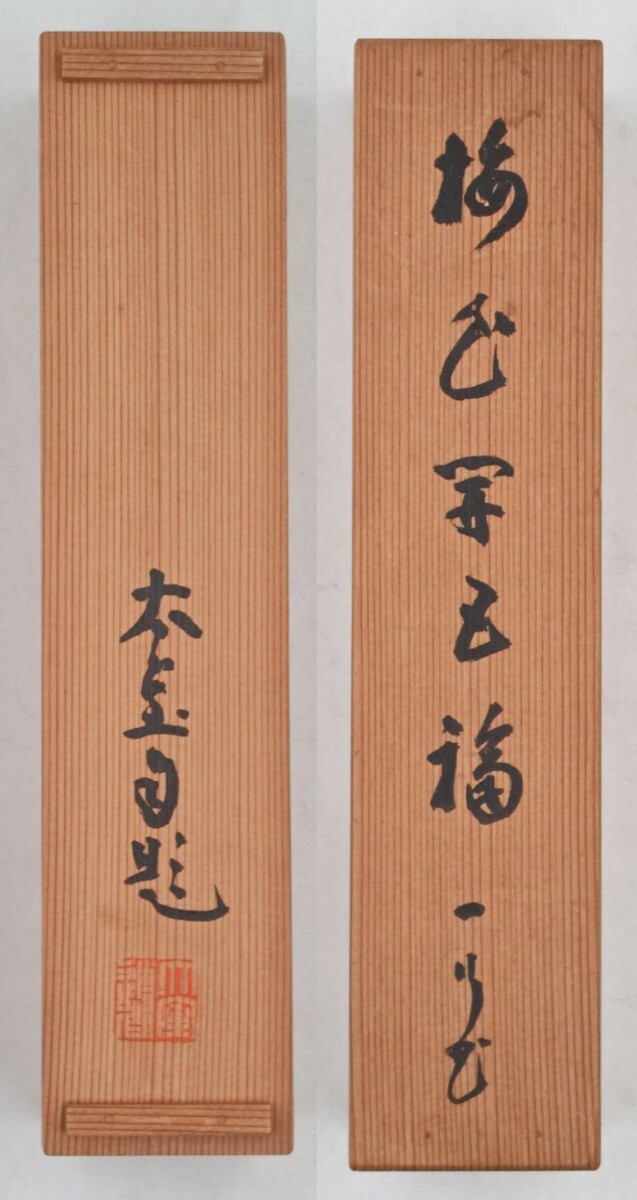 梅花開五福 一行書
太室自題